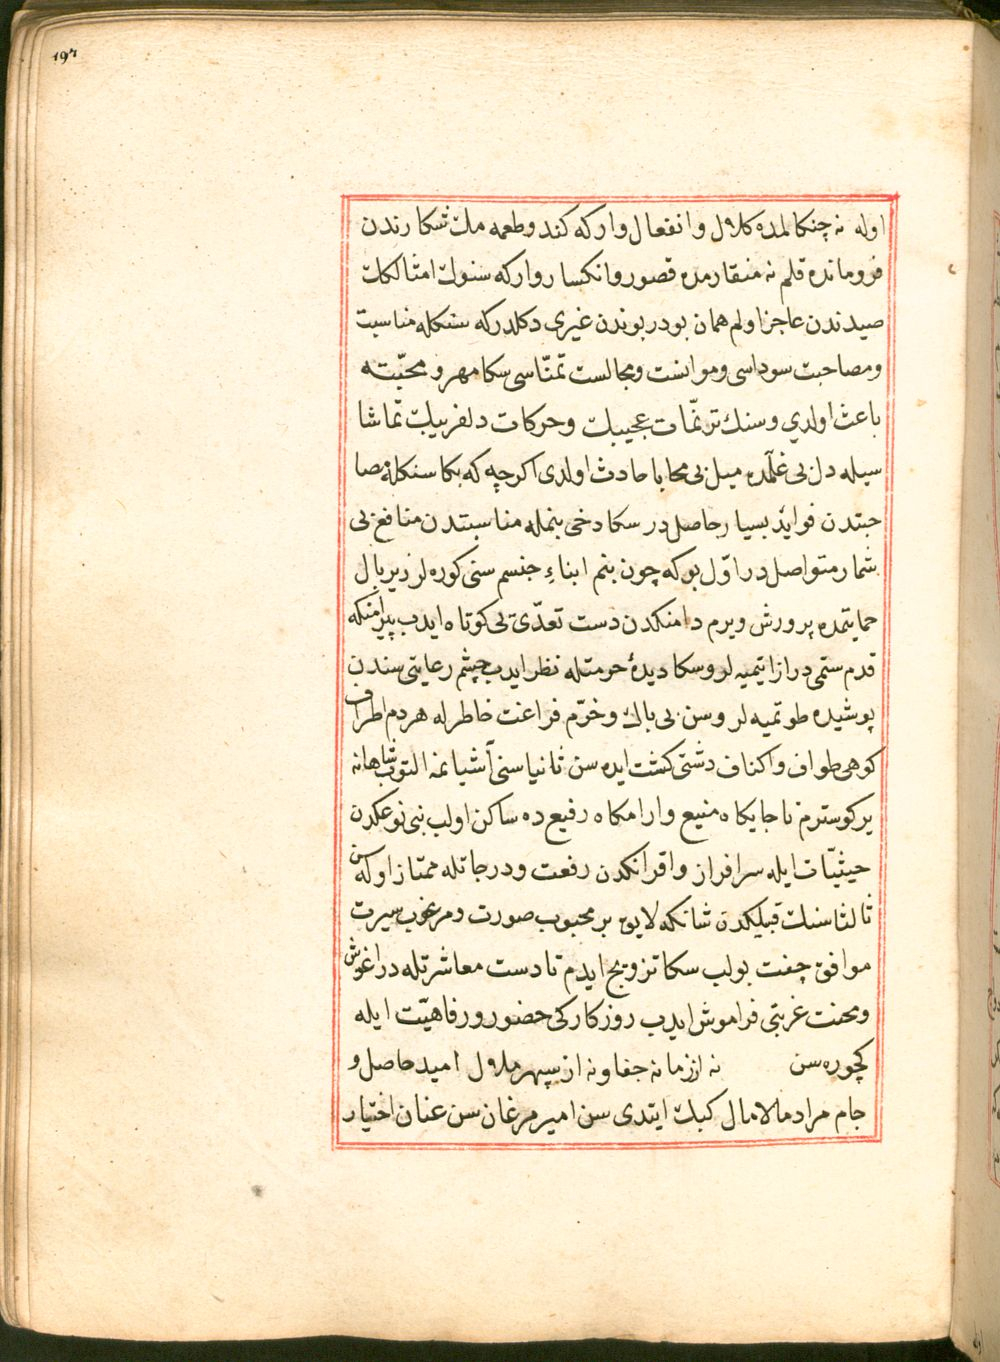 ١٩٣
اوله نه چنكالمده كلال وانفعال واركه كندو طعمه ملك شكارندن
فرومانده قلم نه منقارمده قصور وانكسار واركه سنوك امثالكك
صيدندن عاجز اولم همان بودر بوندن غيرى دكلدركه سنكله مناسبت
ومصاحبت سوداسى وموانست ومجالست تمنّاسى سكا مهر ومحبّتمه
باعث اولدي وسنك ترنّمات عجيبك وحركات دلفريبك تماشا
سيله دل بى غلّمده ميل بى محابا حادث اولدى اكرچه كه بكا سنكله مصا
حبتدن فوايد بسيار حاصلدر سكا دخى بنمله مناسبتدن منافع بى
شمار متواصلدر اوّل بوكه چون بنم ابناء جنسم سنى كوره لر زير بال
حمايتمده پرورش ويرم دامنكدن دست تعدّى بى كوتاه ايدب پيرامنكه
قدم ستمى دراز ايتميه لر وسكا ديدهٔ حرمتله نظر ايدب چشم رعايتى سندن
پوشيده طوتميه لر وسن بى باك وخرّم فراغت خاطرله هردم اطراف
كوهى طواف واكناف دشتى كشت ايده سن ثانيا سنى آشيانمه التوب شاهانه
ير كوسترم تا جايكاه منيع وارامكاه رفيع ده ساكن اولب بنى نوعكدن
حيثيّات ايله سرافراز واقرانكدن رفعت ودرجاتله ممتاز اوله سن
ثالثا سنك قبيلكدن شانكه لايق بر محبوب صورت ومرغوب سيرت
موافق جفت بولب سكا تزويج ايدم تا دست معاشرتله دراغوش
ومحنت غربتى فراموش ايدب روزكاركى حضور ورفاهيّت ايله
كچوره سن نه از زمانه جفا و نه از سپهر ملال اميد حاصل و
جام مراد مالامال كبك ايتدى سن امير مرغان سن عنان اختيار